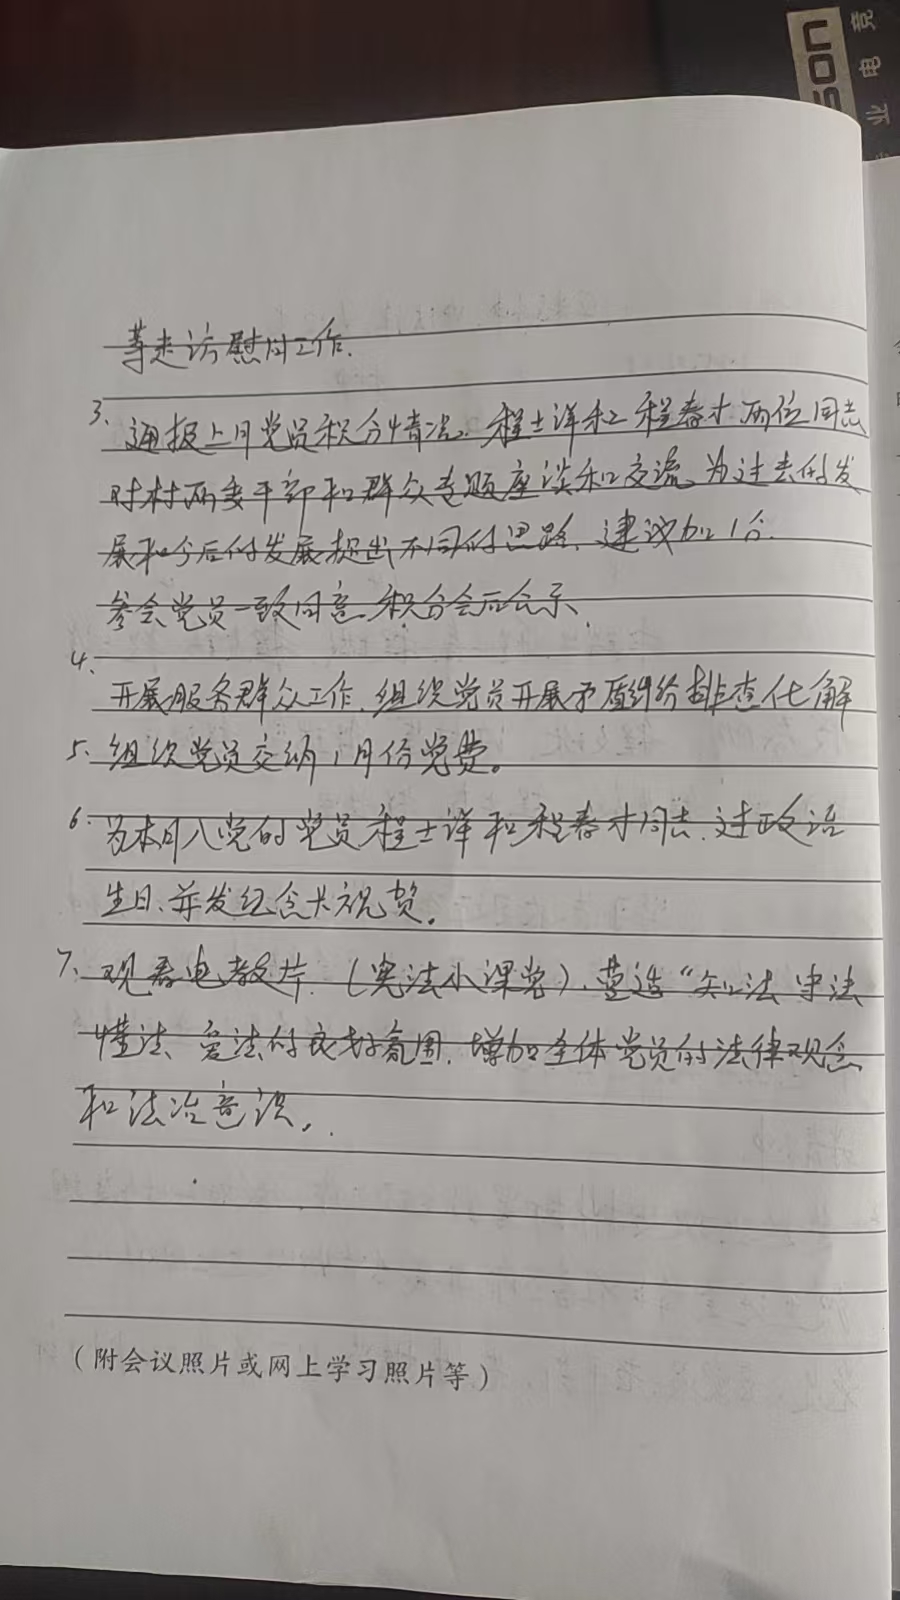 son
业电竞
等走访慰问工作.
3、通报上月党员积分情况. 程士详和程春才两位同志
对村两委干部和群众专题座谈和交流、为过去的发
展和今后的发展提出不同的思路、建议加1分.
参会党员一致同意、积分会后公示、
4、开展服务群众工作. 组织党员开展矛盾纠纷排查化解
5、组织党员交纳1月份党费。
6、为本月入党的党员程士详和程春才同志、过政治
生日、并发纪念卡祝贺。
7、观看电教片.(宪法小课堂)、营造“知法 守法
懂法、爱法的良好氛围. 增加全体党员的法律观念
和法治意识。
(附会议照片或网上学习照片等)